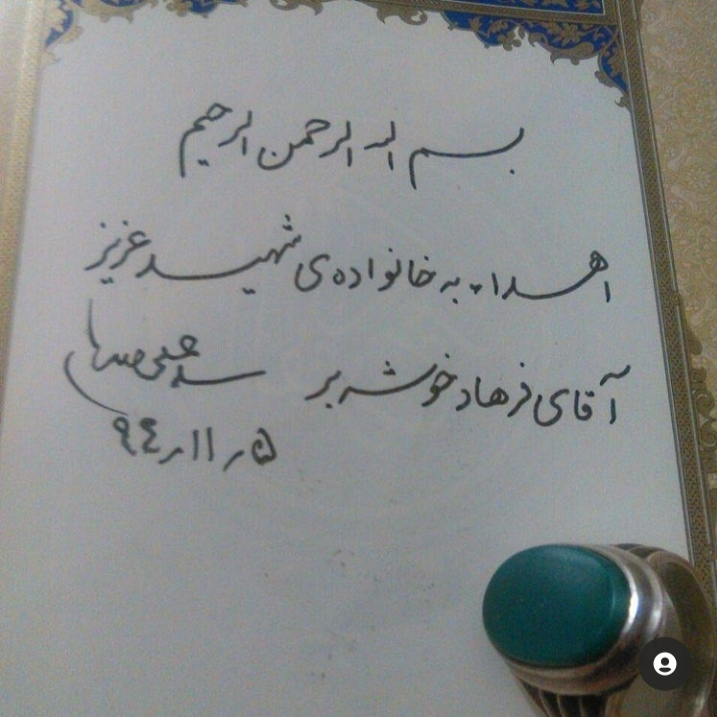 بسم الله الرحمن الرحیم
اهداء به خانواده‌ی شهید عزیز
آقای فرهاد خوشه بر
سید علی خامنه‌ای
۹۴ر۱۱ر۵